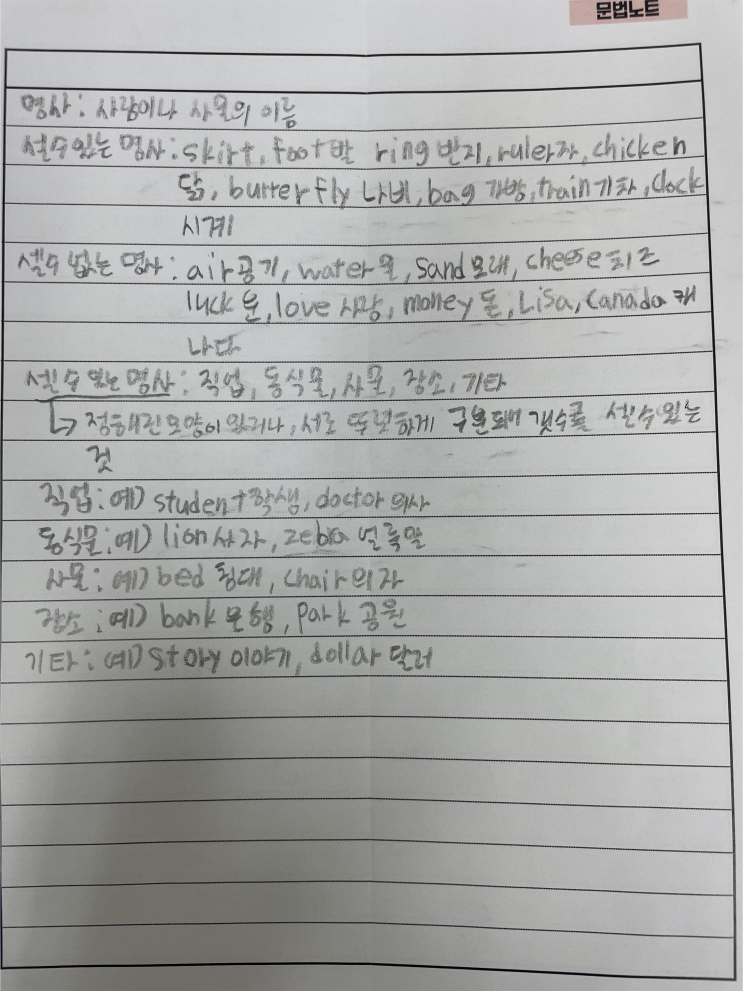 문법노트
명사: 사람이나 사물의 이름
셀수있는 명사: skirt, foot발 ring 반지, ruler자, chicken
닭, burrerfly 나비, bag 가방, train기차, clock
시계
셀수 없는 명사: air공기, water물, sand모래, cheese치즈
luck운, love사랑, money 돈, Lisa, Canada 캐
나다
셀 수 있는 명사: 직업, 동식물, 사물, 장소, 기타
↳ 정해진모양이 있거나, 서로 뚜렷하게 구분돼어 갯수를 셀 수 있는
것
직업: 예) student학생, doctor의사
동식물: 예) lion사자, zebra 얼룩말
사물: 예) bed 침대, chair의자
장소: 예) bank 은행, park 공원
기타: 예) story 이야기, dollar 달러